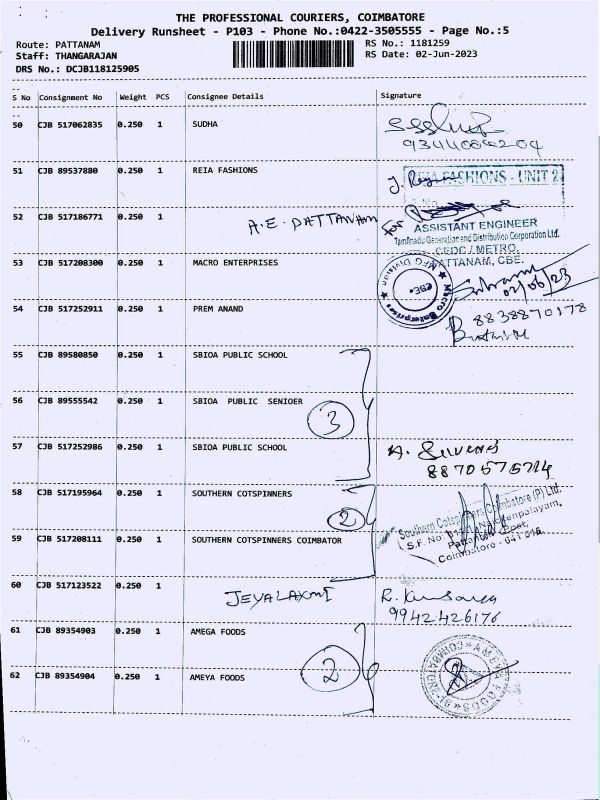 THE PROFESSIONAL COURIERS, COIMBATORE
Delivery Runsheet - P103 - Phone No.:0422-3505555 - Page No.:5
Route: PATTANAM RS No.: 1181259
Staff: THANGARAJAN RS Date: 02-Jun-2023
DRS No.: DCJB118125905
S No Consignment No Weight PCS Consignee Details Signature
50 CJB 517062835 0.250 1 SUDHA
51 CJB 89537880 0.250 1 REIA FASHIONS
REIA FASHIONS - UNIT 2
52 CJB 517186771 0.250 1 A.E. PATTANAM
For
ASSISTANT ENGINEER
Tamilnadu Generation and Distribution Corporation Ltd.
CEDC / METRO,
PATTANAM, CBE.
53 CJB 517208300 0.250 1 MACRO ENTERPRISES
Macro Enterprises
MFG Division
CBE.
02/06/23
54 CJB 517252911 0.250 1 PREM ANAND
8838870178
55 CJB 89580850 0.250 1 SBIOA PUBLIC SCHOOL
56 CJB 89555542 0.250 1 SBIOA PUBLIC SENIOER
3
57 CJB 517252986 0.250 1 SBIOA PUBLIC SCHOOL
58 CJB 517195964 0.250 1 SOUTHERN COTSPINNERS
2
Southern Cotspinners Coimbatore (P) Ltd.
59 CJB 517208111 0.250 1 SOUTHERN COTSPINNERS COIMBATOR
Coimbatore - 641 016.
60 CJB 517123522 0.250 1 JEYALAXMI
9942426176
61 CJB 89354903 0.250 1 AMEGA FOODS
2
62 CJB 89354904 0.250 1 AMEYA FOODS